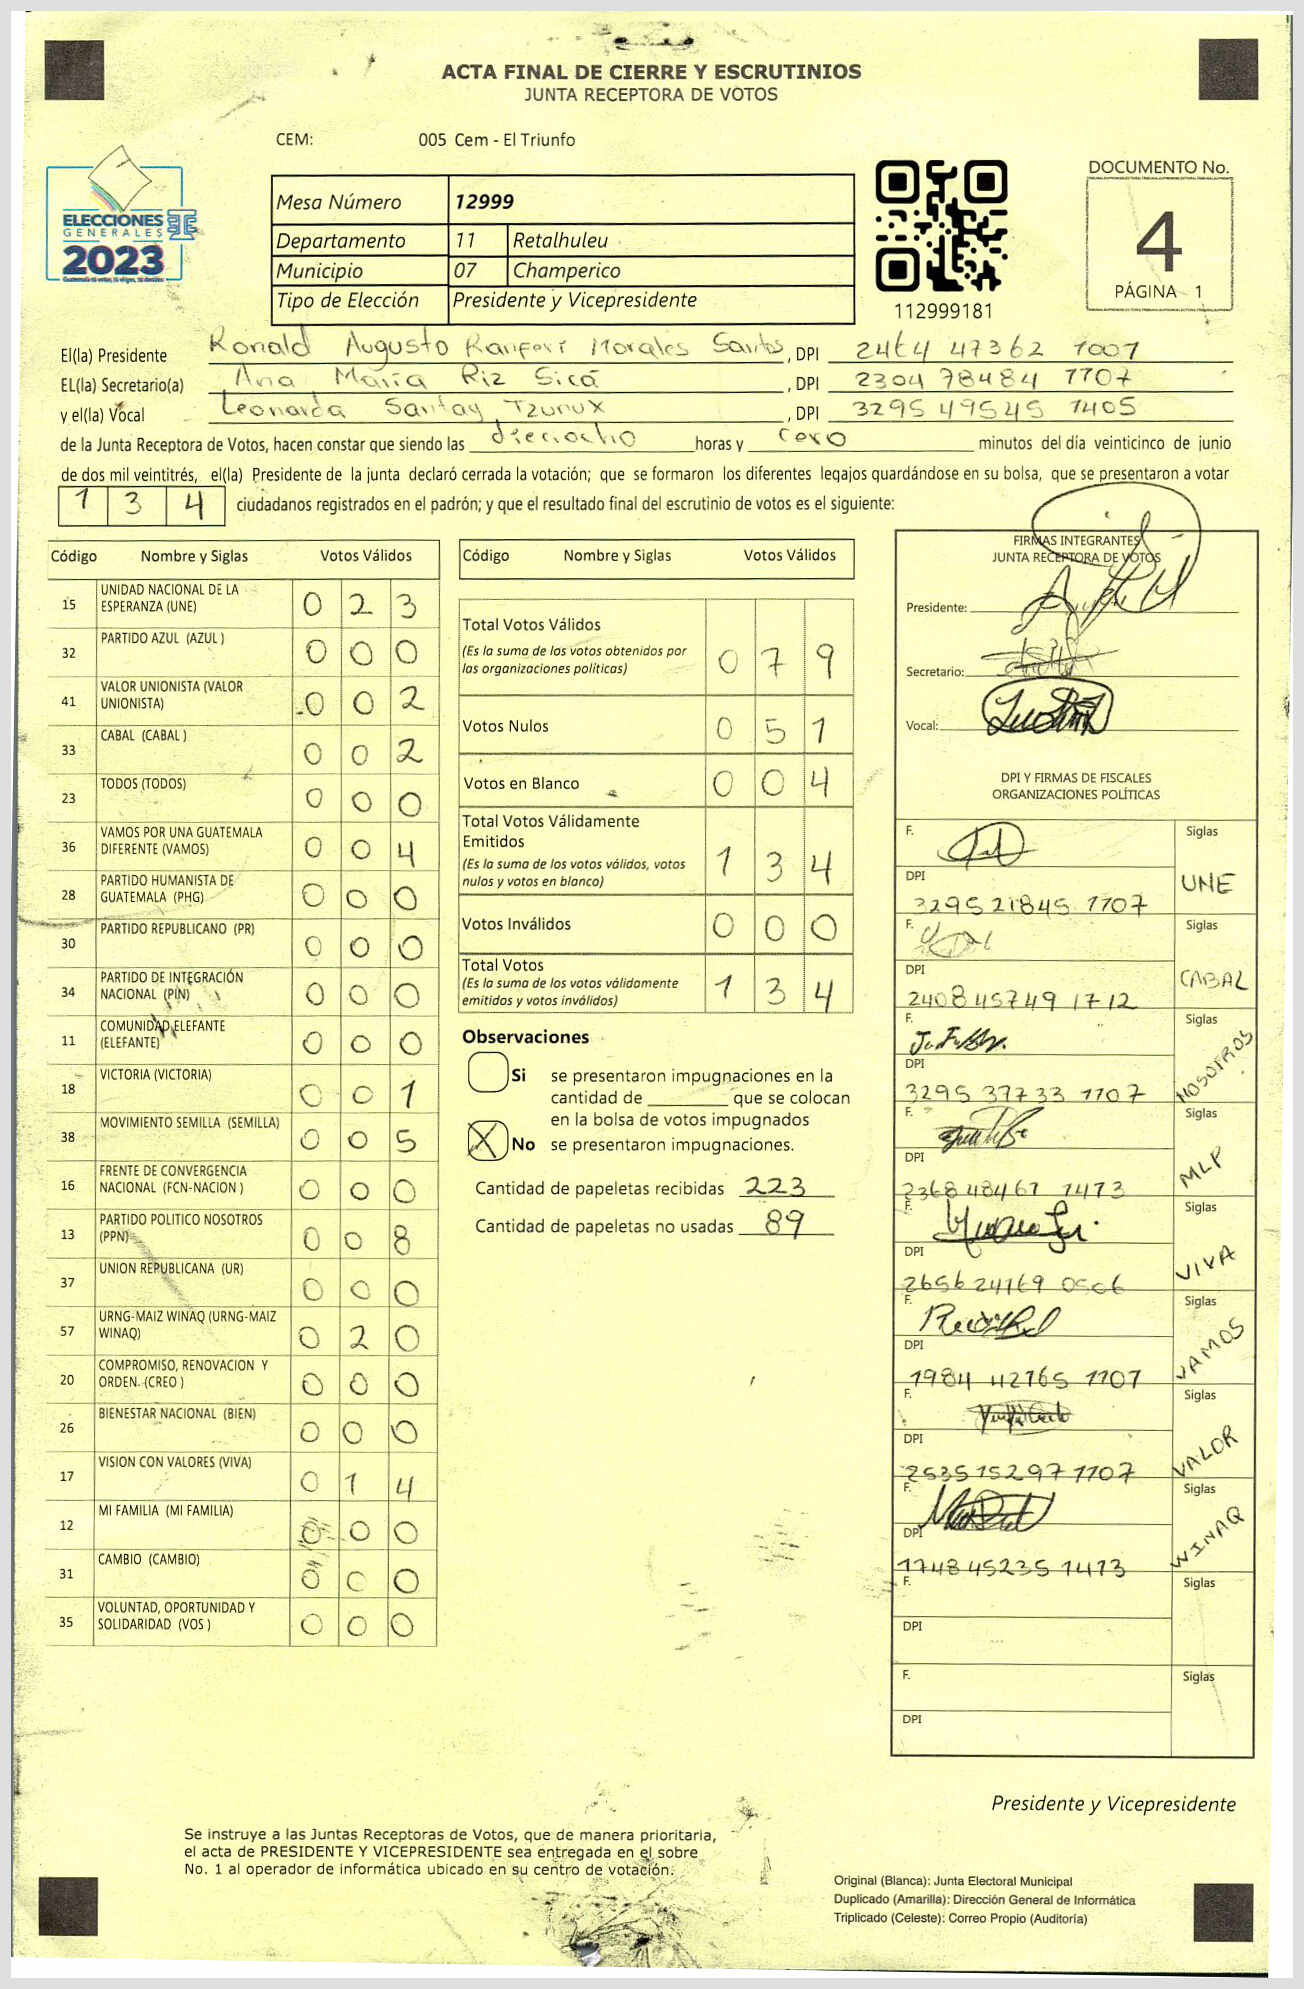 ACTA FINAL DE CIERRE Y ESCRUTINIOS
JUNTA RECEPTORA DE VOTOS
CEM: 005 Cem - El Triunfo
ELECCIONES
GENERALES
2023
Mesa Número 12999
Departamento 11 Retalhuleu
Municipio 07 Champerico
Tipo de Elección Presidente y Vicepresidente
112999181
DOCUMENTO No.
4
PÁGINA 1
El(la) Presidente Ronald Augusto Morales Santos, DPI 2464 47362 1001
EL(la) Secretario(a) Ana María Riz Sicá, DPI 2304 78484 1107
y el(la) Vocal Leonarda Santay Tzunux, DPI 3295 49545 1405
de la Junta Receptora de Votos, hacen constar que siendo las dieciocho horas y cero minutos del día veinticinco de junio
de dos mil veintitrés, el(la) Presidente de la junta declaró cerrada la votación; que se formaron los diferentes legajos guardándose en su bolsa, que se presentaron a votar
1 3 4 ciudadanos registrados en el padrón; y que el resultado final del escrutinio de votos es el siguiente:
Código Nombre y Siglas Votos Válidos
15 UNIDAD NACIONAL DE LA ESPERANZA (UNE) 0 2 3
32 PARTIDO AZUL (AZUL ) 0 0 0
41 VALOR UNIONISTA (VALOR UNIONISTA) 0 0 2
33 CABAL (CABAL ) 0 0 2
23 TODOS (TODOS) 0 0 0
36 VAMOS POR UNA GUATEMALA DIFERENTE (VAMOS) 0 0 4
28 PARTIDO HUMANISTA DE GUATEMALA (PHG) 0 0 0
30 PARTIDO REPUBLICANO (PR) 0 0 0
34 PARTIDO DE INTEGRACIÓN NACIONAL (PIN) 0 0 0
11 COMUNIDAD ELEFANTE (ELEFANTE) 0 0 0
18 VICTORIA (VICTORIA) 0 0 1
38 MOVIMIENTO SEMILLA (SEMILLA) 0 0 5
16 FRENTE DE CONVERGENCIA NACIONAL (FCN-NACION ) 0 0 0
13 PARTIDO POLITICO NOSOTROS (PPN) 0 0 8
37 UNION REPUBLICANA (UR) 0 0 0
57 URNG-MAIZ WINAQ (URNG-MAIZ WINAQ) 0 2 0
20 COMPROMISO, RENOVACION Y ORDEN (CREO ) 0 0 0
26 BIENESTAR NACIONAL (BIEN) 0 0 0
17 VISION CON VALORES (VIVA) 0 1 4
12 MI FAMILIA (MI FAMILIA) 0 0 0
31 CAMBIO (CAMBIO) 0 0 0
35 VOLUNTAD, OPORTUNIDAD Y SOLIDARIDAD (VOS ) 0 0 0
Código Nombre y Siglas Votos Válidos
Total Votos Válidos
(Es la suma de los votos obtenidos por
las organizaciones políticas) 0 7 9
Votos Nulos 0 5 1
Votos en Blanco 0 0 4
Total Votos Válidamente
Emitidos
(Es la suma de los votos válidos, votos
nulos y votos en blanco) 1 3 4
Votos Inválidos 0 0 0
Total Votos
(Es la suma de los votos válidamente
emitidos y votos inválidos) 1 3 4
Observaciones
Si se presentaron impugnaciones en la
cantidad de ________ que se colocan
en la bolsa de votos impugnados
X No se presentaron impugnaciones.
Cantidad de papeletas recibidas 223
Cantidad de papeletas no usadas 89
FIRMAS INTEGRANTES
JUNTA RECEPTORA DE VOTOS
Presidente:
Secretario:
Vocal:
DPI Y FIRMAS DE FISCALES
ORGANIZACIONES POLÍTICAS
F. Siglas
DPI UNE
3295 21845 1107
F. Siglas
DPI CABAL
2408 45749 1712
F. Siglas
DPI NOSOTROS
3295 37733 1107
F. Siglas
DPI MLP
2368 48467 1413
F. Siglas
DPI VIVA
2656 24169
F. Siglas
DPI VAMOS
1984 42765 1107
F. Siglas
DPI VALOR
2535 15297 1107
F. Siglas
DPI WINAQ
1748 45235 1413
F. Siglas
DPI
F. Siglas
DPI
Presidente y Vicepresidente
Se instruye a las Juntas Receptoras de Votos, que de manera prioritaria,
el acta de PRESIDENTE Y VICEPRESIDENTE sea entregada en el sobre
No. 1 al operador de informática ubicado en su centro de votación.
Original (Blanca): Junta Electoral Municipal
Duplicado (Amarilla): Dirección General de Informática
Triplicado (Celeste): Correo Propio (Auditoría)